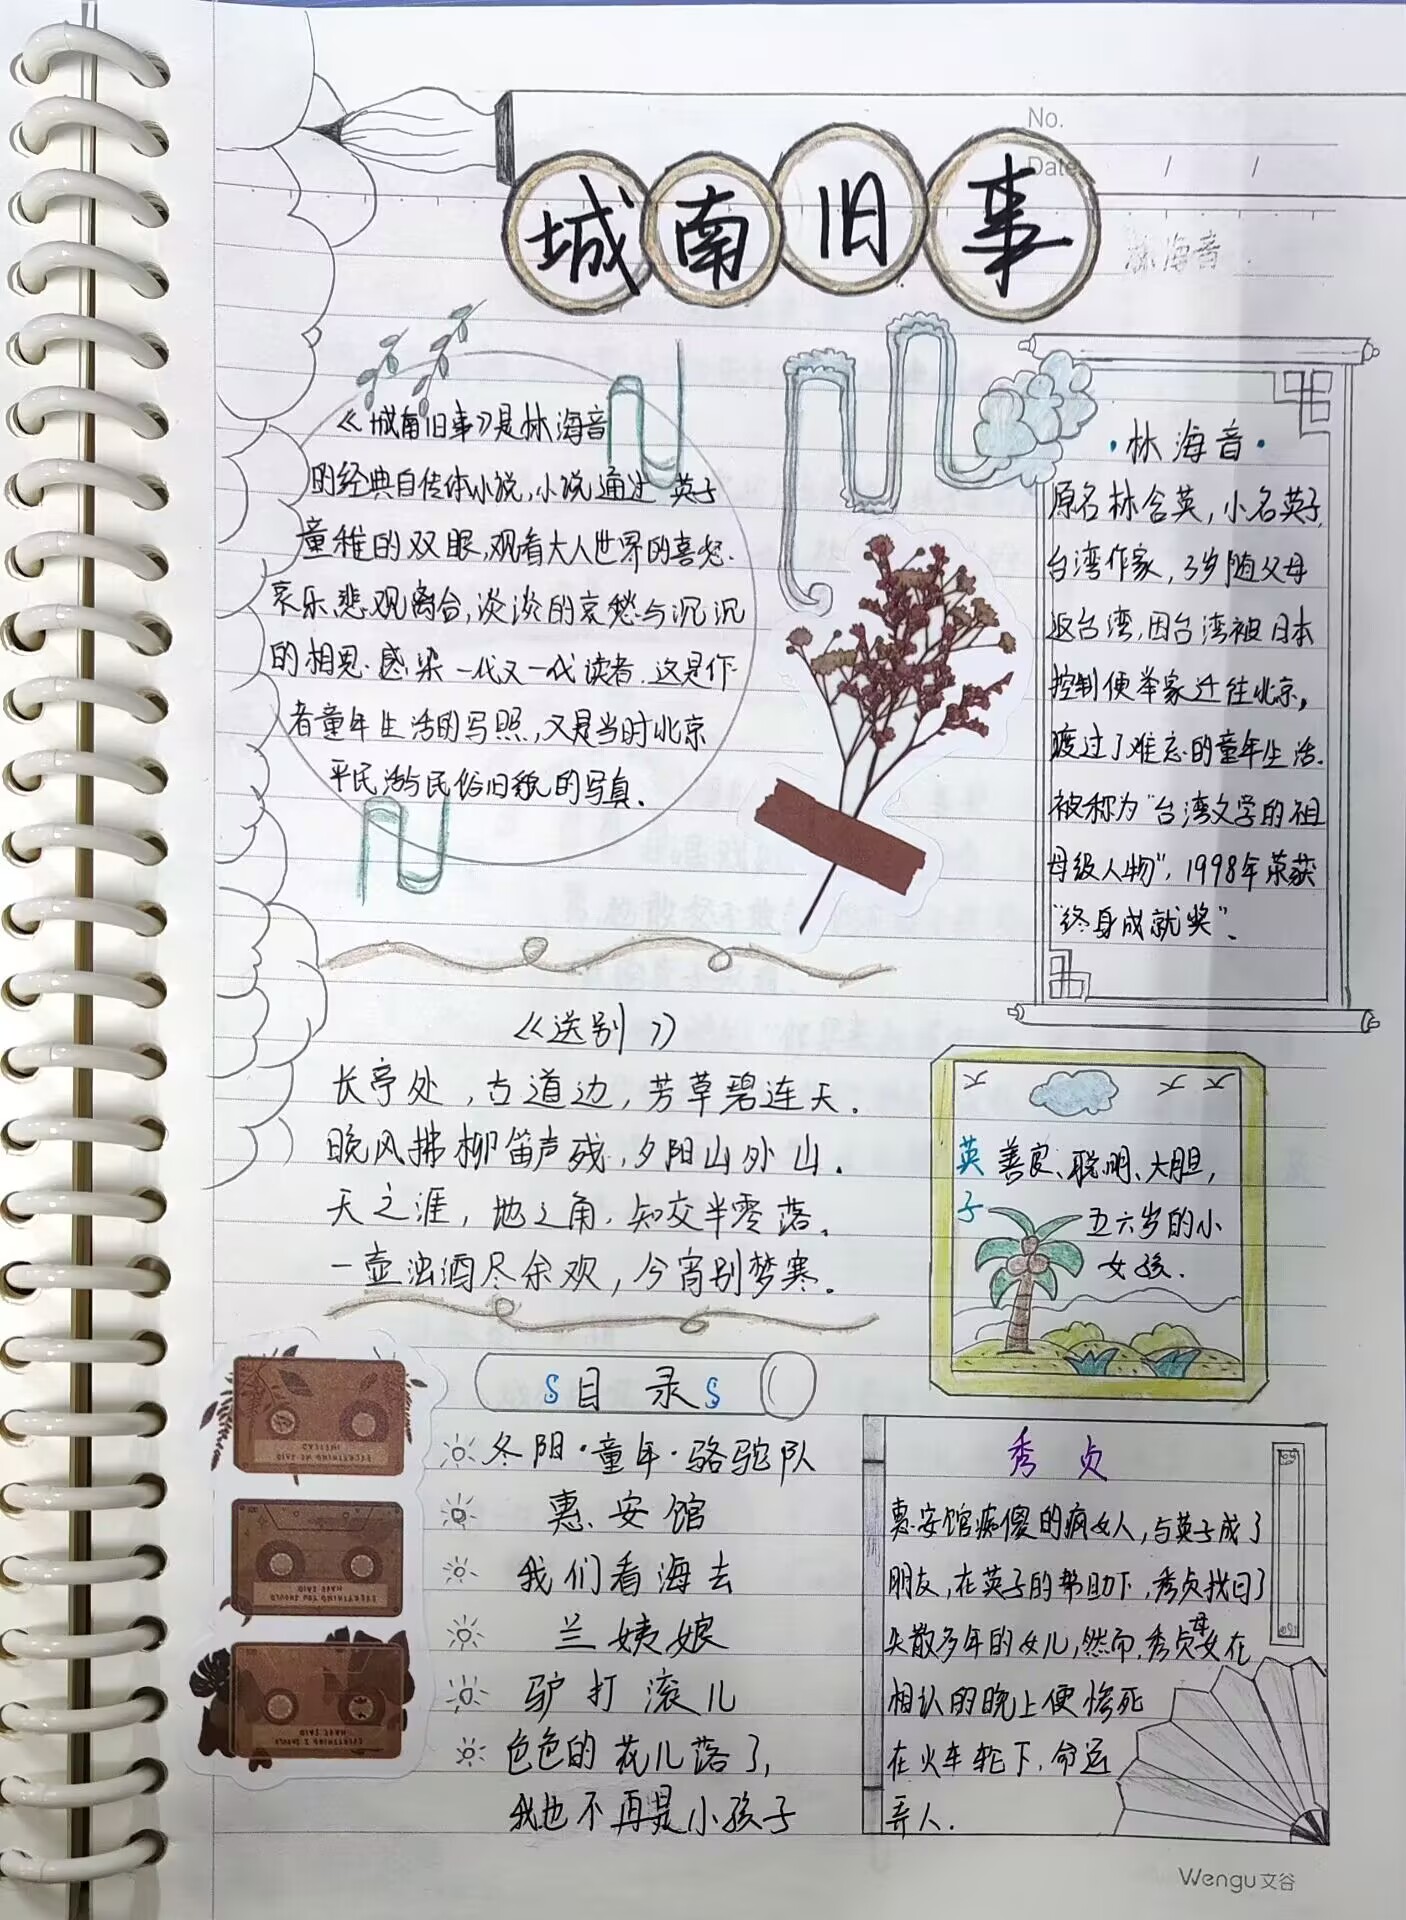 No.
Date: / /
城南旧事
林海音
《城南旧事》是林海音
的经典自传体小说，小说通过英子
童稚的双眼，观看大人世界的喜怒.
哀乐悲观离合，淡淡的哀愁与沉沉
的相思.感染一代又一代读者.这是作
者童年生活的写照，又是当时北京
平民活与民俗旧貌的写真.
·林海音·
原名林含英，小名英子,
台湾作家，3岁随父母
返台湾，因台湾被日本
控制便举家迁往北京,
度过了难忘的童年生活.
被称为“台湾文学的祖
母级人物”，1998年荣获
“终身成就奖”.
《送别》
长亭处，古道边，芳草碧连天.
晚风拂柳笛声残，夕阳山外山.
天之涯，地之角，知交半零落.
一壶浊酒尽余欢，今宵别梦寒.
英子
善良、聪明、大胆，
五六岁的小
女孩.
目录
冬阳·童年·骆驼队
惠安馆
我们看海去
兰姨娘
驴打滚儿
色色的花儿落了，
我也不再是小孩子
秀贞
惠安馆痴傻的疯女人，与英子成了
朋友，在英子的帮助下，秀贞找回了
失散多年的女儿，然而，秀贞母女在
相认的晚上便惨死
在火车轮下，命运
弄人.
EVERYTHING WE SAID
EVERYTHING YOU SHOULD
HAVE SAID
EVERYTHING I SHOULD
HAVE SAID
Wengu文谷